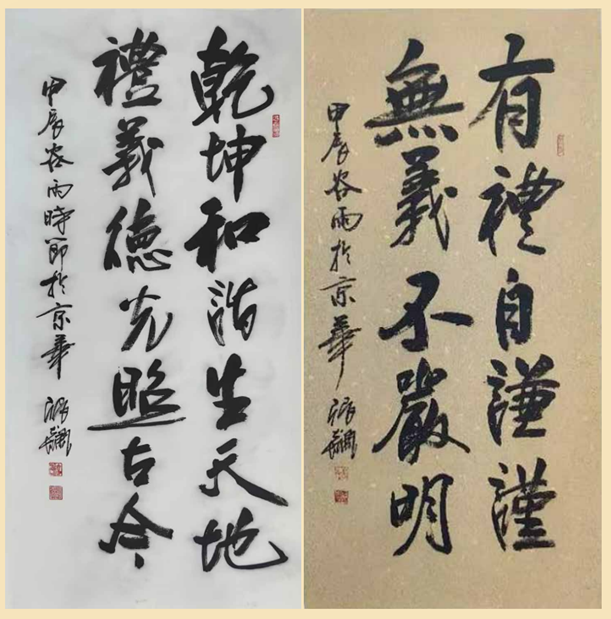 乾坤和谐生天地
禮義德光照古今
甲辰谷雨時節於京華
有禮自謙謹
無義不嚴明
甲辰谷雨於京華